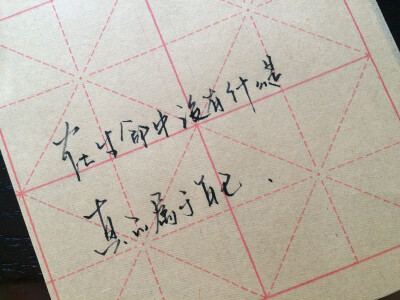 在生命中没有什么是
真的属于自己.